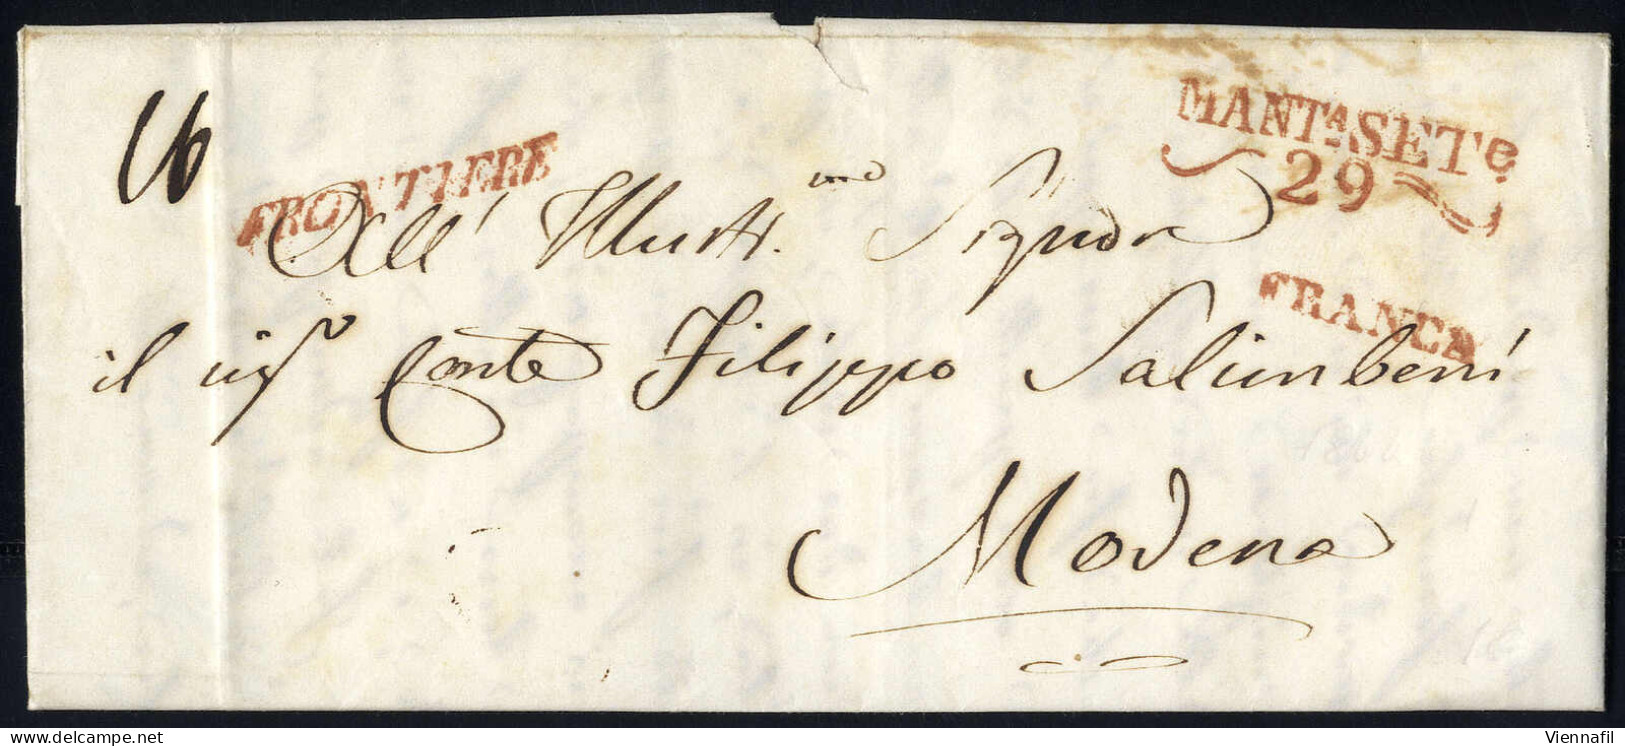 16
FRONTIERE
MANTᴬ SETᵉ
29
FRANCA
All' Illustr.mo Signor
il sigr Conte Filippo Salimbeni
Modena
delcampe.net
Viennafil